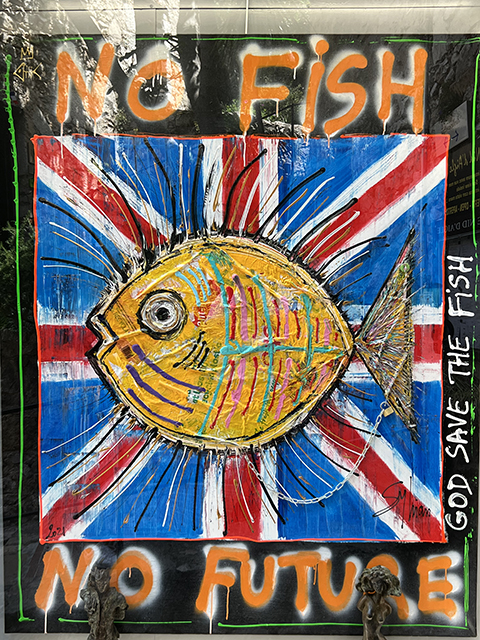 NO FiSH
GOD SAVE THE FiSH
2021
NO FUTURE